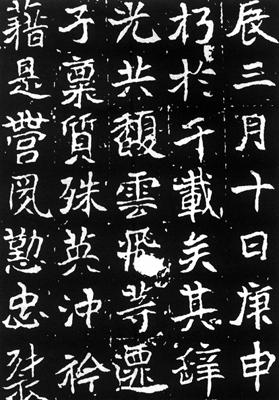 辰三月十日庚申
朽於千載矣其辭
光共馥雲飛等
子稟質殊英沖衿
藉是營懃忠